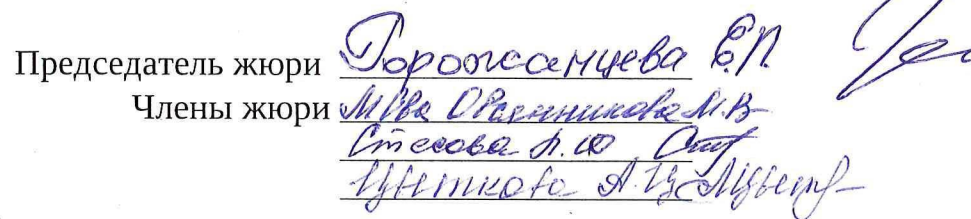 Председатель жюри Горожанцева Е.П.
Члены жюри Овчинникова М.В.
Стесова Л.Ю
Цветкова А.Ц.